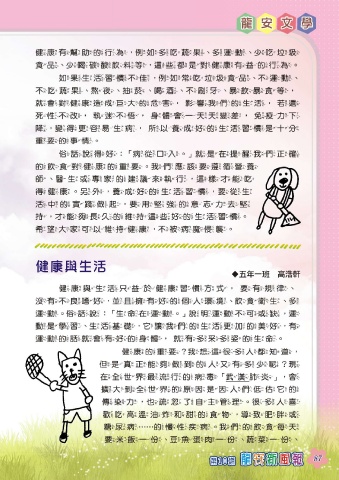 龍安文學
健康有幫助的行為，例如多吃蔬果、多運動、少吃垃圾
食品、少喝碳酸飲料等，這些都是對健康有益的行為。
如果生活習慣不佳，例如常吃垃圾食品、不運動、
不吃蔬果、熬夜、抽菸、喝酒、不刷牙、暴飲暴食等，
就會對健康造成巨大的危害，影響我們的生活，若還
死性不改、執迷不悟，身體會一天天變差，免疫力下
降，變得更容易生病，所以養成好的生活習慣是十分
重要的事情。
俗話說得好：「病從口入。」就是在提醒我們正確
的飲食對健康的重要。我們應該要遵循營養
師、醫生或專家的建議來執行，這樣才能吃
得健康。另外，養成好的生活習慣，要從生
活中的實踐做起，要用堅強的意志力去堅
持，才能夠長久的維持這些好的生活習慣。
希望大家可以維持健康，不被病魔侵襲。
健康與生活
◆五年一班 高浩軒
健康與生活只益於健康習慣方式，要有規律、
沒有不良嗜好，並且擁有好的個人環境、飲食衛生、多
運動。俗話說：「生命在運動。」說明運動不可或缺，運
動是學習、生活基礎，它讓我們的生活更加的美好，有
運動的話就會有好的身體，就有多采多姿的生命。
健康的重要？我想這很多人都知道，
但是真正能夠做到的人又有多少呢？現
在全世界最流行的病毒「武漢肺炎」，會
擴大到全世界的原因是因人們低估它的
傳染力，也疏忽了自主管理。很多人喜
歡吃高溫油炸和甜的食物，導致肥胖或
糖尿病……的慢性疾病。我們的飲食每天
要米飯一份、豆魚蛋肉一份、蔬菜一份、